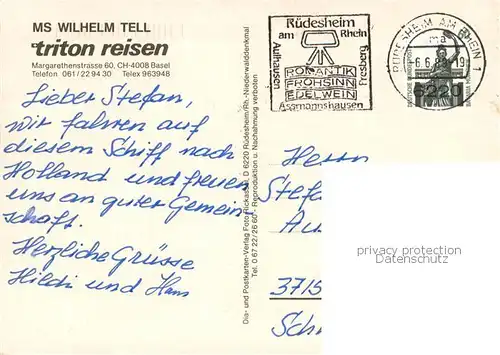 MS WILHELM TELL
triton reisen
Margarethenstrasse 60, CH-4008 Basel
Telefon 061/22 94 30 Telex 963948
Lieber Stefan,
wir fahren auf
diesem Schiff nach
Holland und freuen
uns an guter Gemein
schaft.
Herzliche Grüsse
Hildi und Hans
Dia- und Postkarten-Verlag Foto Rickassel, D 6220 Rüdesheim/Rh.-Niederwalddenkmal
Tel. 0 67 22 / 26 60 - Reproduktion u. Nachahmung verboten
Rüdesheim
am Rhein
Aulhausen
Presberg
ROMANTIK
FROHSINN
EDELWEIN
Assmannshausen
RÜDESHEIM AM RHEIN 1
ma
6220
Herrn
Stefa
Au
3715
Sch
privacy protection
www.akpool.de